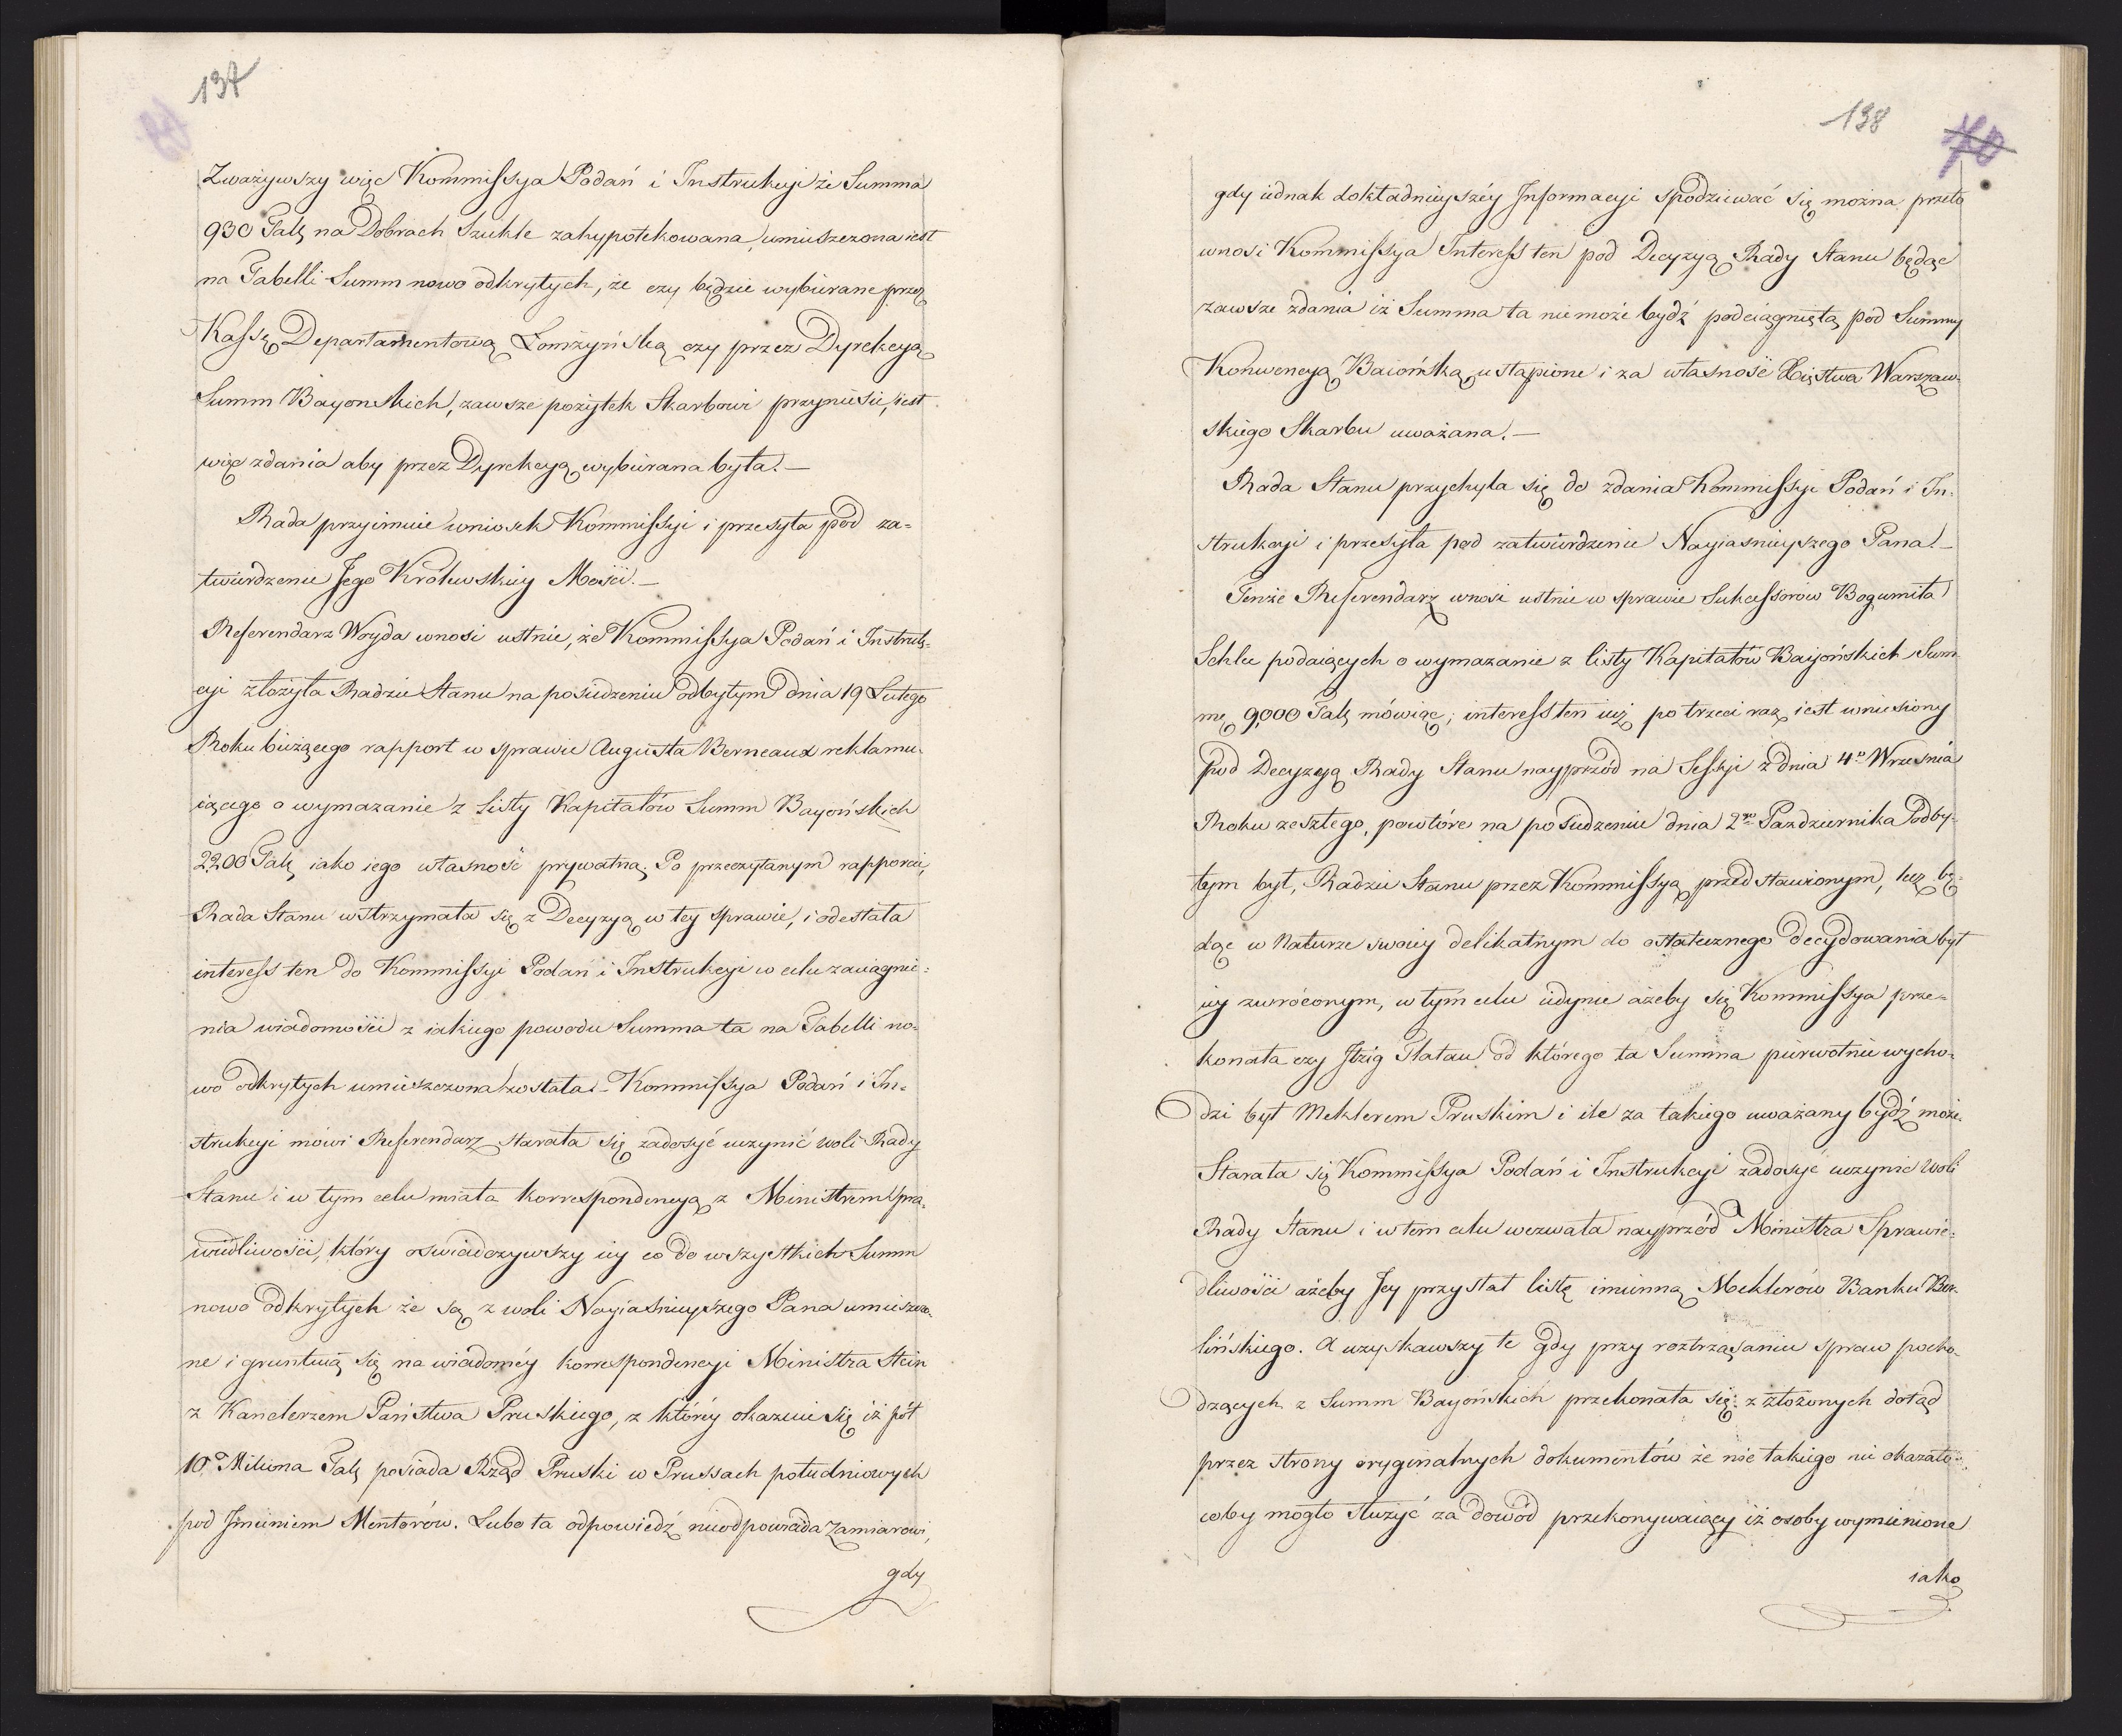 137
Zważywszy więc Kommissya Podań i Instrukcyi że Summa
930 Tal, na Dobrach Szukle zahypotekowana, umieszczona iest
na Tabelli Summ nowo odkrytych, że czy będzie wybierane przez
Kassę Departamentową Łomżyńską czy przez Dyrekcyą
Summ Bayonskich, zawsze pożytek Skarbowi przyniesie, iest
więc zdania aby przez Dyrekcyą wybierana była. —
Rada przyimuie wniosek Kommissyi i przesyła pod za-
twierdzenie Jego Królewskiey Mości. —
Referendarz Woyda wnosi ustnie, że Kommissya Podań i Instruk-
cyi złożyła Radzie Stanu na posiedzeniu odbytym dnia 19 Lutego
Roku bieżącego rapport w sprawie Augusta Berneaux reklamu-
iącego o wymazanie z Listy Kapitałów Summ Bayońskich
2200 Tal, iako iego własność prywatną, Po przeczytanym rapporcie,
Rada Stanu wstrzymała się z Decyzyą w tey sprawie, i odesłała
interess ten do Kommissyi Podań i Instrukcyi w celu zaciągnie-
nia wiadomości z iakiego powodu Summa ta na Tabelli no-
wo odkrytych umieszczona została. – Kommissya Podań i In-
strukcyi mówi Referendarz starała się zadosyć uczynić woli Rady
Stanu i w tym celu miała korrespondencyą z Ministrem Spra-
wiedliwości, który oswiadczywszy iey co do wszystkich Summ
nowo odkrytych że są z woli Nayiasnieyszego Pana umieszczo-
ne i gruntuią się na wiadoméy korrespondencyi Ministra Stein
z Kanclerzem Państwa Pruskiego, z któréy okazuie się iż pół
10 Miliona Tal, posiada Rząd Pruski w Prussach południowych
pod Jmieniem Mentorów. Lubo ta odpowiedź nieodpowiada zamiarowi,
gdy
138
70
gdy iednak dokładnieyszéy Informacyi spodziewać się można przeto
wnosi Kommissya Interess ten pod Decyzyą Rady Stanu będąc
zawsze zdania iż Summa ta nie może bydź podciągniętą pod Summy
Konwencyą Baiońską ustąpione i za własność Xięstwa Warszaw-
skiego Skarbu uważana. —
Rada Stanu przychyla się do zdania Kommissyi Podań i In-
strukcyi i przesyła pod zatwierdzenie Nayiasnieyszego Pana. —
Tenże Referendarz wnosi ustnie w sprawie Sukcessorów Bogumiła
Schlee podaiących o wymazanie z listy Kapitałów Baijońskich Sum-
mę 9,000 Tal, mówiąc; interess ten iuż po trzeci raz iest wniesiony
pod Decyzyą Rady Stanu nayprzód na Sessyi z dnia 4o Wrzesnia
Roku zeszłego, powtóre na posiedzeniu dnia 2go Pazdziernika odby-
tym był, Radzie Stanu przez Kommissyą przedstawionym, lecz bę-
dąc w Naturze swoiey delikatnym do ostatecznego decydowania był
iey zwróconym, w tym celu iedynie ażeby się Kommissya prze-
konała czy Itzig Flatau od którego ta Summa pierwotnie wycho-
dzi był Meklerem Pruskim i ile za takiego uważany bydź może.
Starała się Kommissya Podań i Instrukcyi zadosyć uczynić woli
Rady Stanu i w tem celu wezwała nayprzód Ministra Sprawie-
dliwości ażeby Jey przysłał listę imienną Meklerów Banku Ber-
lińskiego. A uzyskawszy te gdy przy roztrząsaniu spraw pocho-
dzących z Summ Bayońskich przekonała się z złożonych dotąd
przez strony oryginalnych dokumentów że nic takiego nie okazało
coby mogło służyć za dowód przekonywaiący iż osoby wymienione
iako